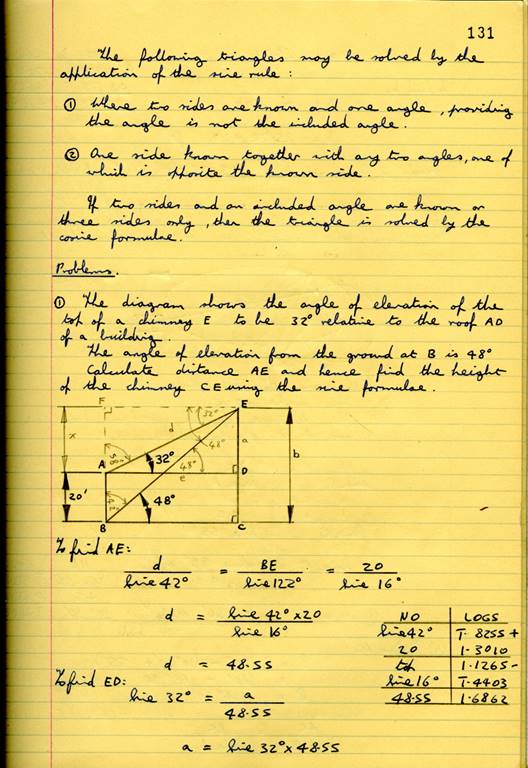 131
The following triangles may be solved by the
application of the sine rule :
① Where two sides are known and one angle, providing
the angle is not the included angle.
② One side known together with any two angles, one of
which is opposite the known side.
If two sides and an included angle are known or
three sides only, then the triangle is solved by the
cosine formulae.
Problems.
① The diagram shows the angle of elevation of the
top of a chimney E to be 32° relative to the roof AD
of a building.
The angle of elevation from the ground at B is 48°
Calculate distance AE and hence find the height
of the chimney CE using the sine formulae.
F E
32°
d
x 48° a
58° 32° b
A 48° D
e
20' 42° 48°
B C
To find AE:
d / Sine 42° = BE / Sine 122° = 20 / Sine 16°
d = Sine 42° × 20 / Sine 16°
d = 48.55
NO LOGS
Sine 42° T.8255 +
20 1.3010
top 1.1265 -
Sine 16° T.4403
48.55 1.6862
To find ED:
Sine 32° = a / 48.55
a = Sine 32° × 48.55